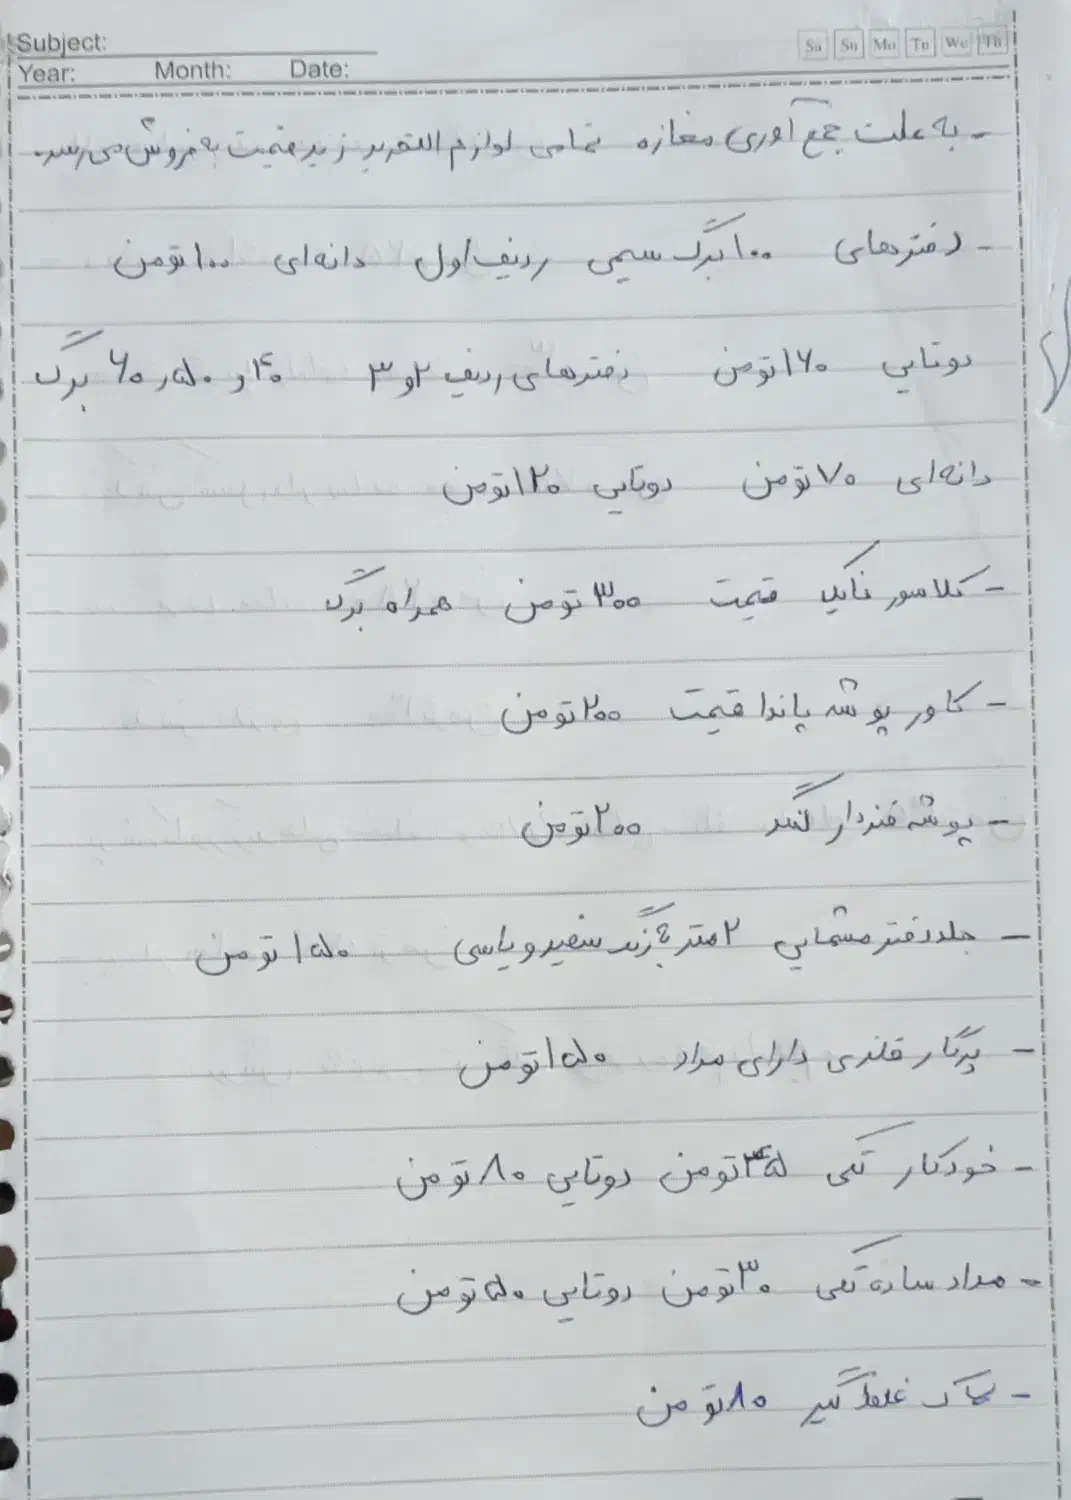 Subject:
Sa Su Mo Tu We Th
Year: Month: Date:
- به علت جمع آوری مغازه تمامی لوازم التحریر زیر قیمت به فروش می رسد.
- دفترهای ۱۰۰ برگ سیمی ردیف اول دانه ای ۱۰۰ تومن
دوتایی ۱۶۰ تومن دفترهای ردیف ۲ و ۳ ۴۰ و ۵۰ و ۶۰ برگ
دانه ای ۷۰ تومن دوتایی ۱۲۰ تومن
- کلاسور قیمت ۳۰۰ تومن همراه برگ
- کاور پوشه پاندا قیمت ۲۰۰ تومن
- پوشه فنردار ۲۰۰ تومن
- جلد دفتر مشمایی ۲ متر به رنگ سفید و یاسی ۱۵۰ تومن
- پرگار فلزی دارای مداد ۱۵۰ تومن
- خودکار تکی ۴۵ تومن دوتایی ۸۰ تومن
- مداد ساده تکی ۳۰ تومن دوتایی ۵۰ تومن
- لاک غلط گیر ۸۰ تومن